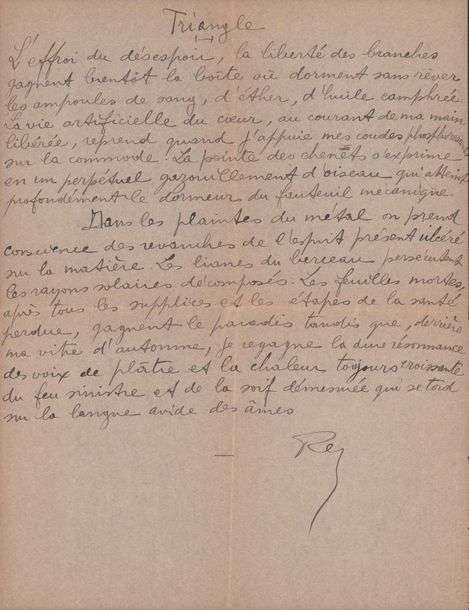 Triangle
L'effroi du désespoir, la liberté des branches
gagnent bientôt la boîte où dorment sans rêver
les ampoules de sang, d'éther, d'huile camphrée
La vie artificielle du cœur, au courant de ma main
libérée, reprend quand j'appuie mes coudes phosphorescents
sur la commode. La peinte des chenêts s'exprime
en un perpétuel gazouillement d'oiseau qui atteint
profondément le dormeur du fauteuil mécanique
Dans les plaintes du métal on prend
conscience des revanches de l'esprit présent libéré
sur la matière. Les lianes du berceau persécutent
les rayons solaires décomposés. Les feuilles mortes,
après tous les supplices et les étapes de la santé
perdue, gagnent le paradis tandis que, derrière
ma vitre d'automne, je regagne la dure résonnance
des voix de plâtre et la chaleur toujours croissante
du feu sinistre et de la soif démesurée qui se tord
sur la langue avide des âmes